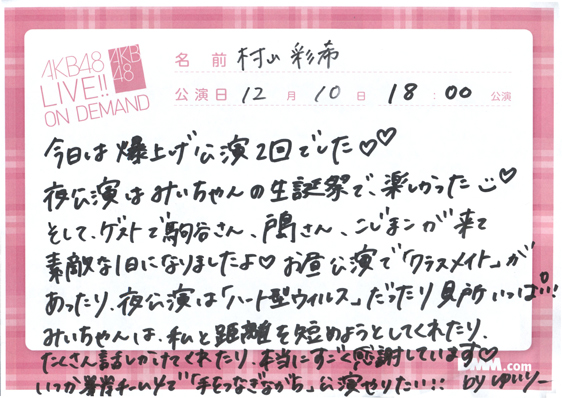 AKB48
LIVE!!
ON DEMAND
AKB
48
名前 村山彩希
公演日 12月10日 18:00 公演
今日は爆上げ公演2回でした♡♡
夜公演はみぃちゃんの生誕祭で、楽しかった♡
そして、ゲストで駒谷さん、戸島さん、こじまこが来て
素敵な1日になりましたよ♡ お昼公演で「クラスメイト」が
あったり、夜公演は「ハート型ウイルス」だったり見所いっぱい!!
みぃちゃんは、私と距離を短めようとしてくれたり、
たくさん話しかけてくれたり、本当にすごく感謝しています♡
いつか チーム4で「手をつなぎながら」公演やりたい!! by ゆいりー
DMM.com